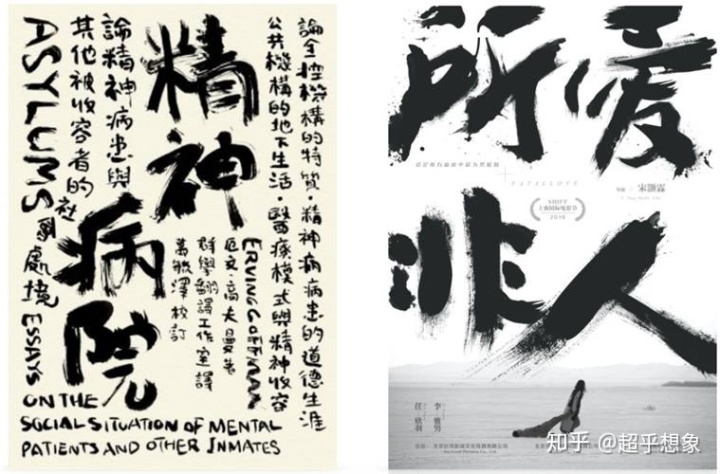 精神病院
論精神病患與
其他被收容者的社會處境
ASYLUMS
ESSAYS ON THE
SOCIAL SITUATION OF MENTAL
PATIENTS AND OTHER INMATES
論全控機構的特質・精神病病患的道德生涯
公共機構的地下生活・醫療模式與精神收容
ERVING GOFFMAN
厄文・高夫曼著
群學翻譯工作室譯
萬毓澤校訂
所愛非人
FATALLOVE
SIFF
上海国际电影节
2016
李雅男
任欣羽
知乎 @超乎想象